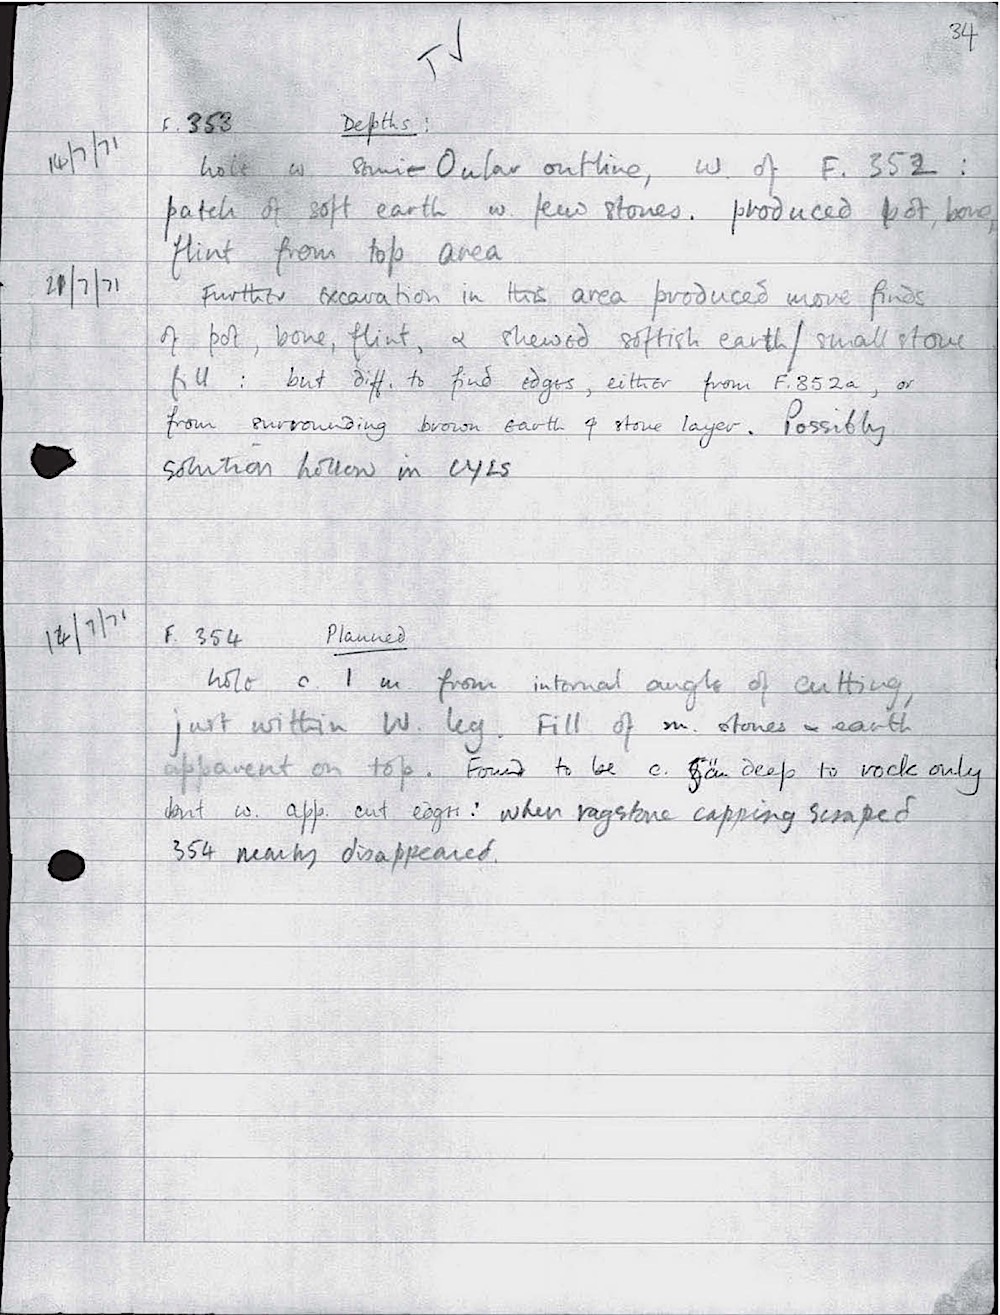 34
T √
F. 353 Depths:
14/7/71
hole w. semi-Oular outline, W. of F. 352 :
patch of soft earth w. few stones. produced pot, bone,
flint from top area
21/7/71
Further excavation in this area produced more finds
of pot, bone, flint, & shewed softish earth/small stone
fill : but diff. to find edges, either from F.352a, or
from surrounding brown earth & stone layer. Possibly
solution hollow in CYLS
14/7/71
F. 354 Planned
hole c. 1 m from internal angle of cutting,
just within W. leg. Fill of m. stones & earth
apparent on top. Found to be c. deep to rock only
but w. app. cut edges: when ragstone capping scraped
354 nearly disappeared.